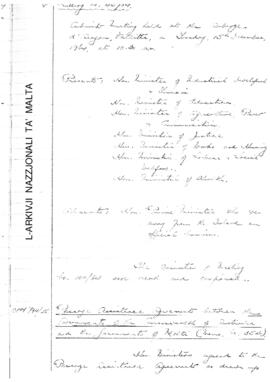 Cabinet Meeting held at the Auberge
d'Aragon, Valletta, on Tuesday, 15th December,
1964, at 10.30 am.
Present: Hon. Minister of Industrial Development
& Tourism
Hon. Minister of Education
Hon. Minister of Agriculture, Power
& Communications
Hon. Minister of Justice
Hon. Minister of Works and Housing
Hon. Minister of Labour & Social
Welfare
Hon. Minister of Health.
Absent: Hon. Prime Minister who was
away from the Island on
The Minutes of Meeting
No were read and confirmed.
Passage Assistance Agreement between the
Government of the Commonwealth of Australia
and the Government of Malta
Hon. Ministers agreed to the
Passage Assistance Agreement as drawn up
L-ARKIVJI NAZZJONALI TA' MALTA